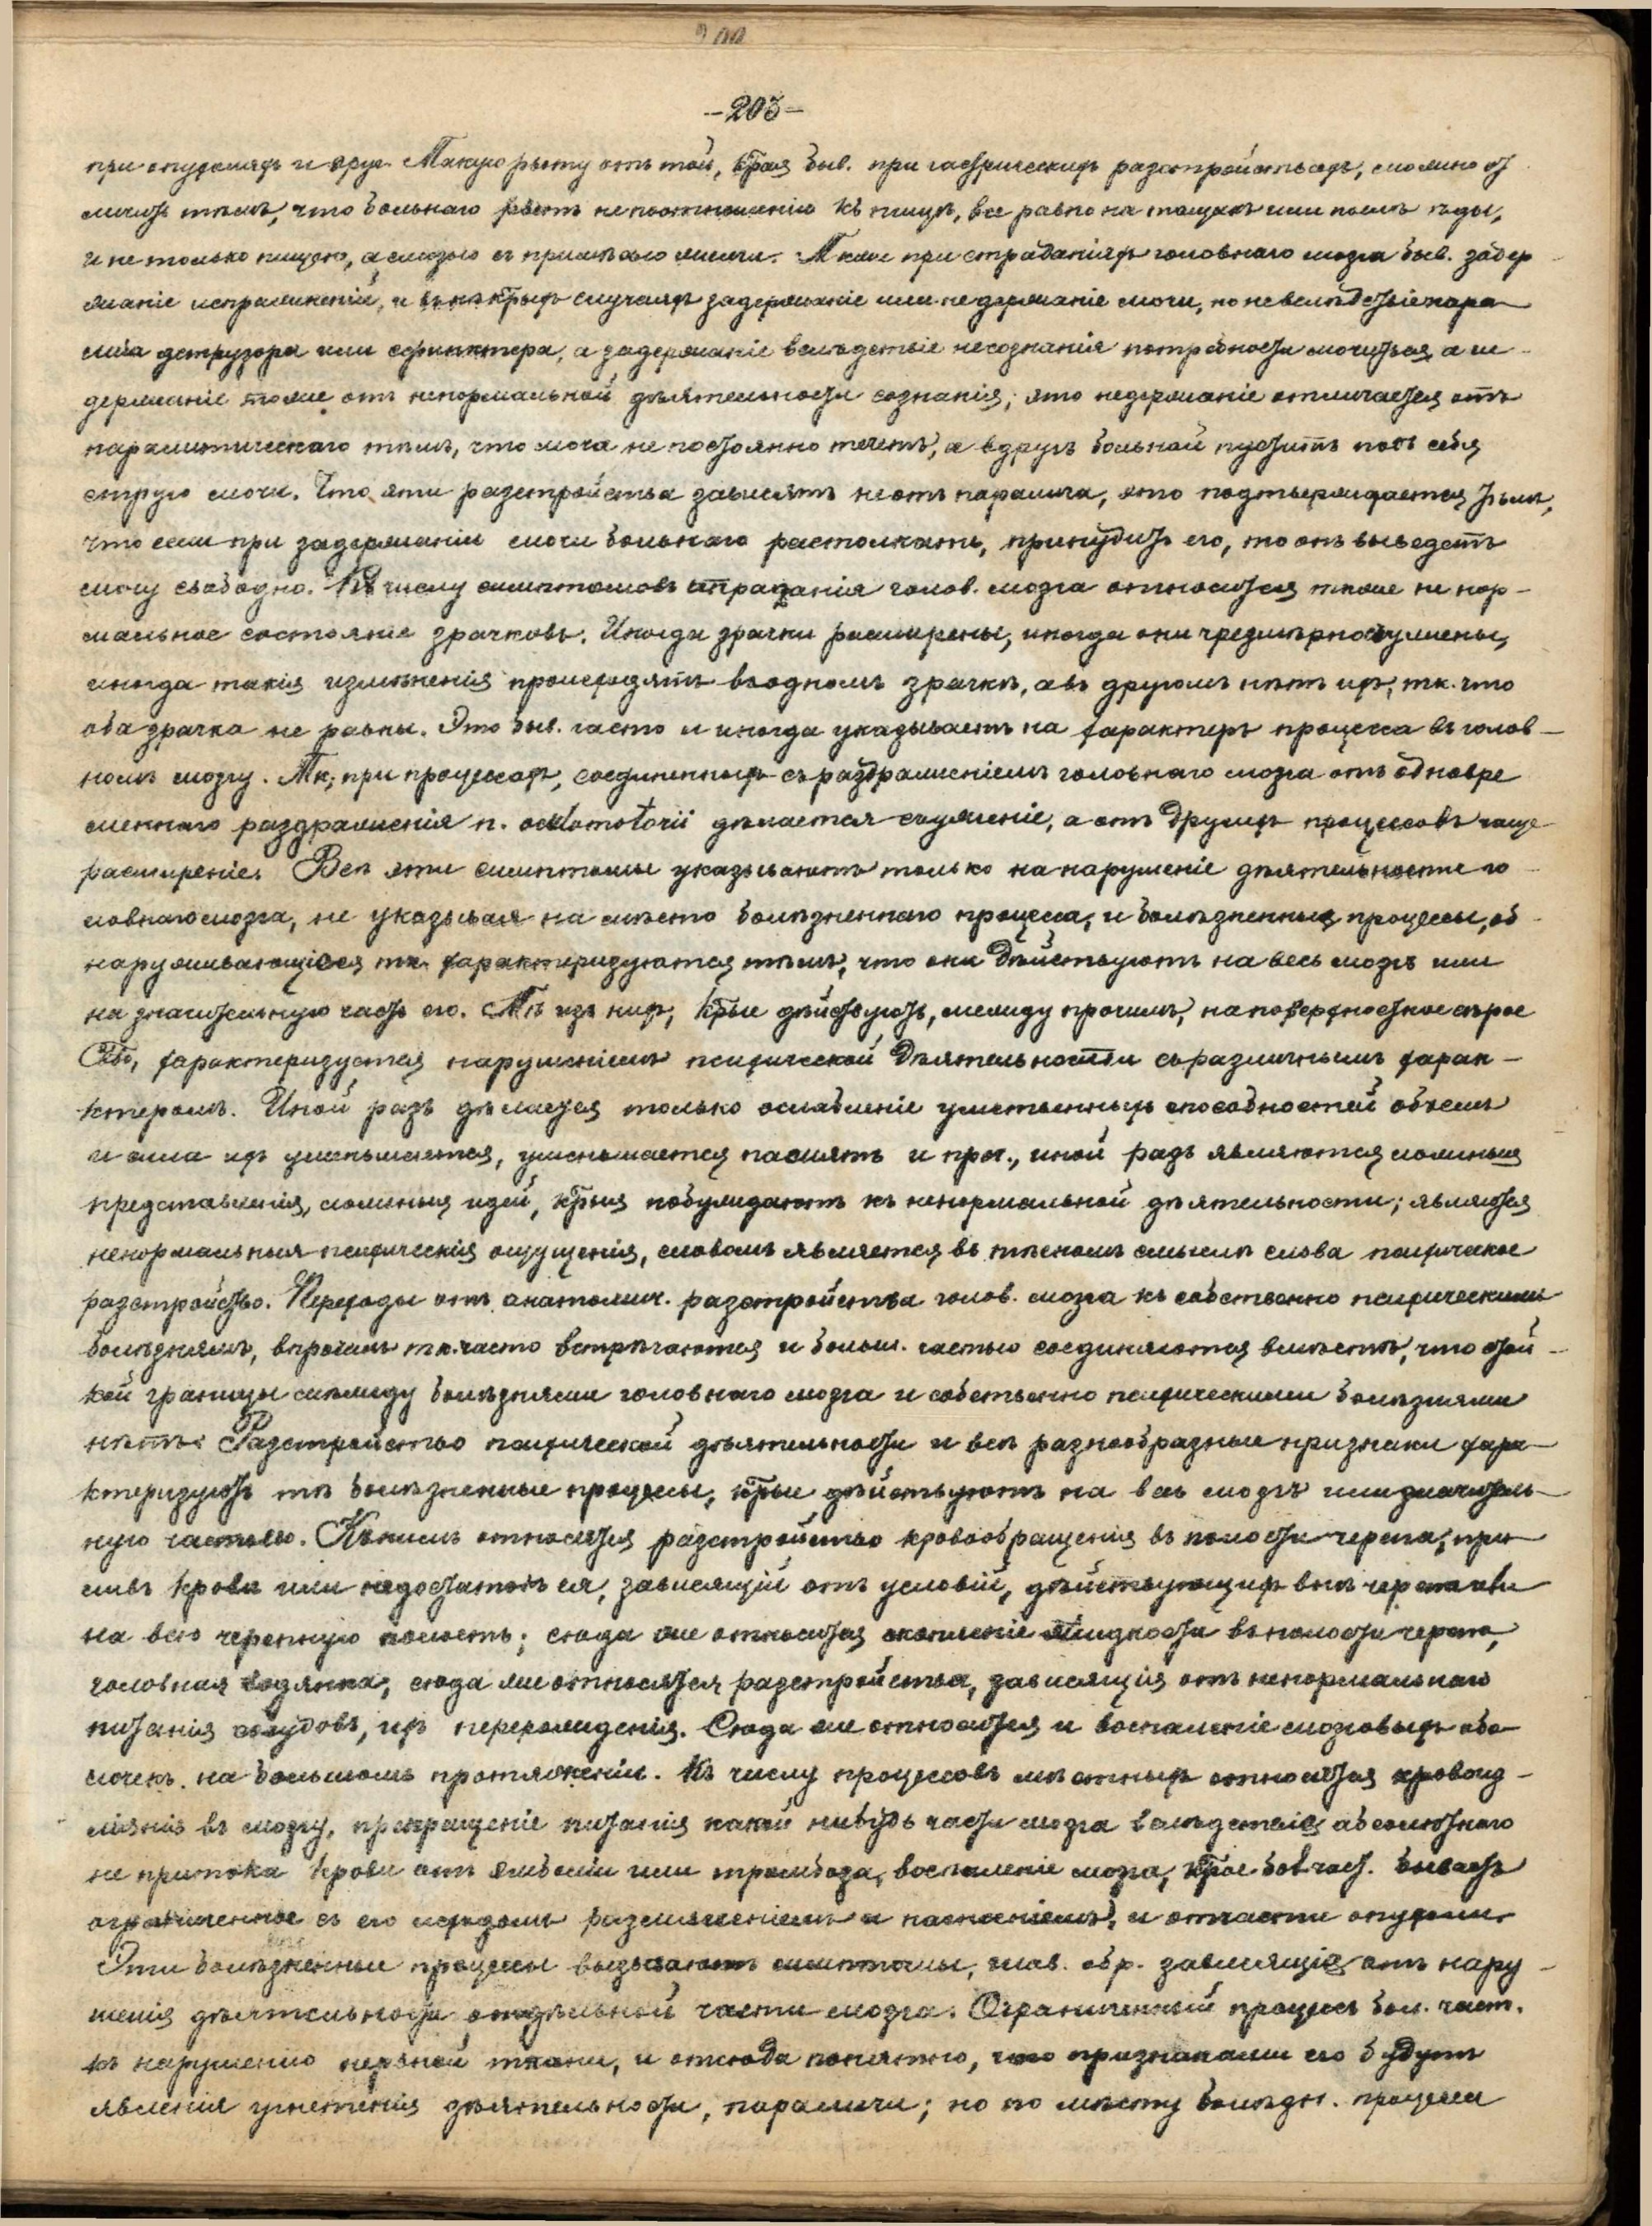 -203-
при опухоляхъ и друг. Такую рвоту отъ той, кѳрая быв. при гастрическихъ разстройствахъ, можно от
личить тѣмъ, что больнаго рветъ не по отношенію къ пищѣ, все равно на тощакъ или послѣ ѣды,
и не только пищею, а слизью съ примѣсью желчи. Также при страданіяхъ головнаго мозга быв. задер
жаніе испражненій, и въ нѣкѳрыхъ случаяхъ задержаніе или недержаніе мочи, но не вслѣдствіе пара
лича детрузора или сфинктера, а задержаніе вслѣдствіе несознанія потребности мочиться, а не-
держаніе тоже отъ ненормальной дѣятельности сознанія; это недержаніе отличается отъ
паралитическаго тѣмъ, что моча не постоянно течетъ, а вдругъ больной пуститъ подъ себя
струю мочи. Что эти разстройства зависятъ не отъ паралича, это подтверждается тѣмъ,
что если при задержаніи мочи больнаго растолкать, принудить его, то онъ выведетъ
мочу свободно. Къ числу симптомовъ страданія голов. мозга относится также не нор-
мальное состояніе зрачковъ. Иногда зрачки расширены, иногда они чрезмѣрно съужены,
иногда такія измѣненія происходятъ въ одномъ зрачкѣ, а въ другомъ нѣтъ ихъ, тк. что
оба зрачка не равны. Это быв. часто и иногда указываетъ на характеръ процесса въ голов-
номъ мозгу. Тк., при процессахъ, соединенныхъ съ раздраженіемъ головнаго мозга отъ одновре
меннаго раздраженія n. oculomotorii дѣлается съуженіе, а отъ другихъ процессовъ чаще
расширеніе. Всѣ эти симптомы указываютъ только на нарушеніе дѣятельности го-
ловнаго мозга, не указывая на мѣсто болѣзненнаго процесса, и болѣзненные процессы, об-
наруживающіеся тк. характеризуются тѣмъ, что они дѣйствуютъ на весь мозгъ или
на значительную часть его. Тѣ изъ нихъ, кѳрые дѣйствуютъ, между прочимъ, на поверхностное сѣрое
Сво, характеризуется нарушеніемъ психической дѣятельности съ различнымъ харак-
ктеромъ. Иной разъ дѣлается только ослабленіе умственныхъ способностей объемъ
и сила ихъ уменьшается, уменьшается память и проч., иной разъ являются ложныя
представленія, ложныя идеи, кѳрыя побуждаютъ къ ненормальной дѣятельности; являются
ненормальныя психическія ощущенія, словомъ является въ тѣсномъ смыслѣ слова психическое
разстройство. Переходы отъ анатомич. разстройства голов. мозга къ собственно психическимъ
болѣзнямъ, впрочемъ тк. часто встрѣчаются и больш. частью соединяются вмѣстѣ, что стой-
кой границы между болѣзнями головнаго мозга и собственно психическими болѣзнями
нѣтъ. Разстройство психической дѣятельности и всѣ разнообразные признаки хара-
ктеризуютъ тѣ болѣзненные процессы, кѳрые дѣйствуютъ на весь мозгъ или значитель-
ную часть его. Къ нимъ относятся разстройство кровообращенія въ полости черепа; при-
ливъ крови или недостатокъ ея, зависящій отъ условій, дѣйствующихъ внѣ черепа или
на всю черепную полость; сюда же относится скопленіе жидкости въ полости черепа,
головная водянка; сюда же относятся разстройства, зависящія отъ ненормальнаго
питанія сосудовъ, ихъ перерожденія. Сюда же относится и воспаленіе мозговыхъ обо-
лочекъ на большомъ протяженіи. Къ числу процессовъ мѣстныхъ относятся кровоиз-
ліяніе въ мозгу, прекращеніе питанія какой нибудь части мозга вслѣдствіе абсолютнаго
не притока крови отъ эмболіи или тромбоза, воспаленіе мозга, кѳрое бол. част. бываетъ
ограниченное съ его исходомъ размягченіемъ и нагноеніемъ, и отчасти опухоли.
Эти болѣзненные процессы вызываютъ симптомы, глав. обр. зависящіе отъ нару-
шенія дѣятельности отдѣльной части мозга. Ограниченный процессъ бол. част.
къ нарушенію нервной ткани, и отсюда понятно, что признаками его будутъ
явленія угнетенія дѣятельности, параличи; но по мѣсту болѣзн. процесса